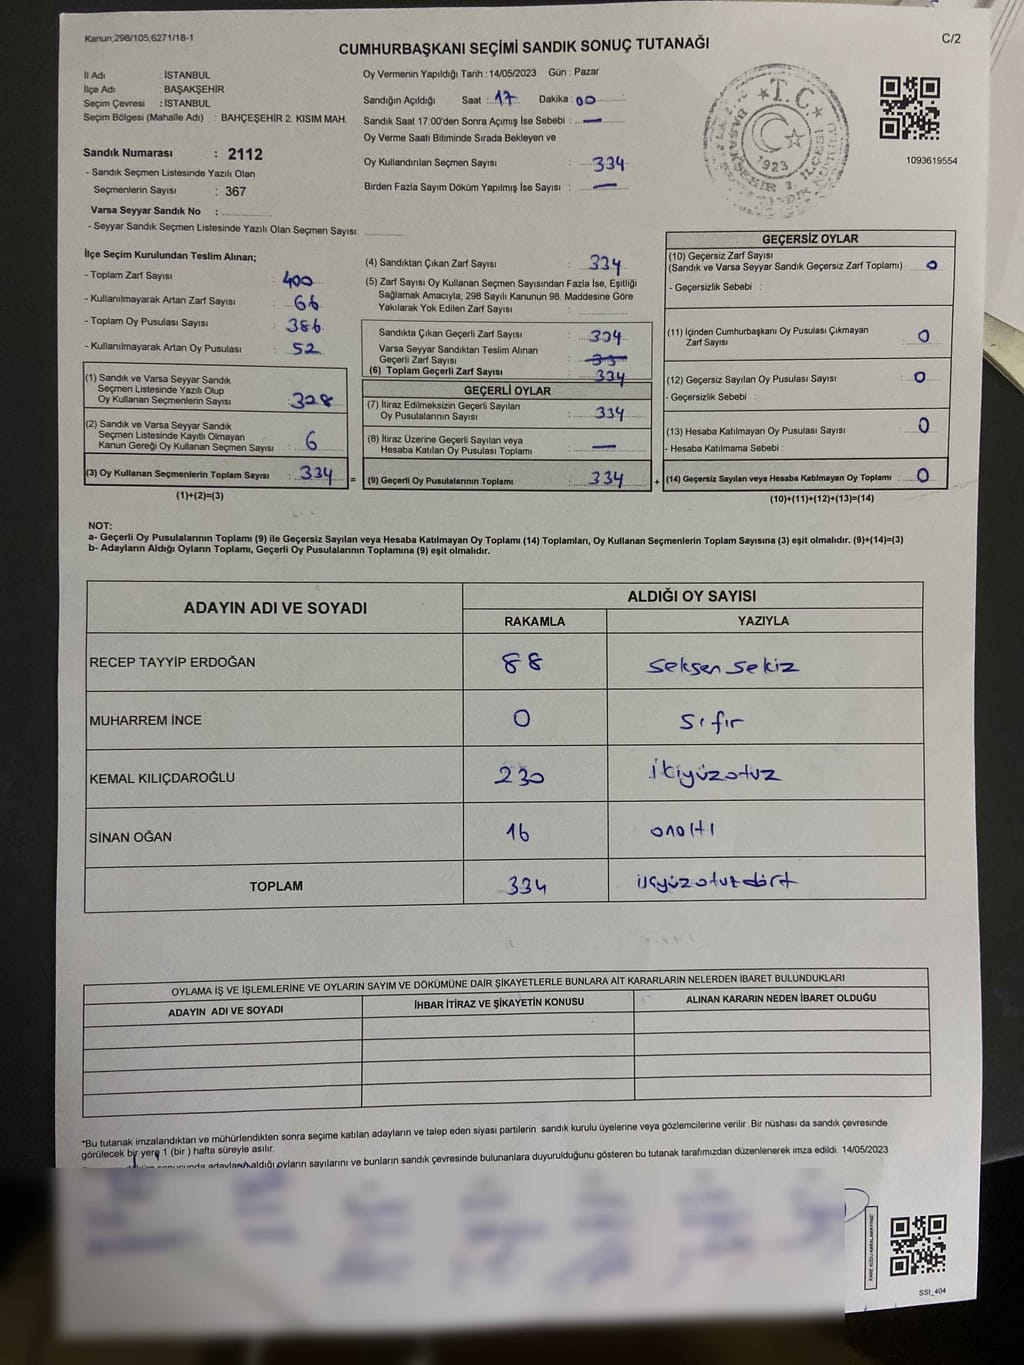 Kanun;298/105,6271/18-1
C/2
CUMHURBAŞKANI SEÇİMİ SANDIK SONUÇ TUTANAĞI
İl Adı : İSTANBUL
İlçe Adı : BAŞAKŞEHİR
Seçim Çevresi : İSTANBUL
Seçim Bölgesi (Mahalle Adı) : BAHÇEŞEHİR 2. KISIM MAH.
Sandık Numarası : 2112
- Sandık Seçmen Listesinde Yazılı Olan
Seçmenlerin Sayısı : 367
Varsa Seyyar Sandık No :
- Seyyar Sandık Seçmen Listesinde Yazılı Olan Seçmen Sayısı:
Oy Vermenin Yapıldığı Tarih : 14/05/2023 Gün : Pazar
Sandığın Açıldığı Saat : 17 Dakika : 00
Sandık Saat 17:00'den Sonra Açımış İse Sebebi : —
Oy Verme Saati Bitiminde Sırada Bekleyen ve
Oy Kullandırılan Seçmen Sayısı : 334
Birden Fazla Sayım Döküm Yapılmış İse Sayısı : —
T.C.
1923
1093619554
İlçe Seçim Kurulundan Teslim Alınan;
- Toplam Zarf Sayısı : 400
- Kullanılmayarak Artan Zarf Sayısı : 66
- Toplam Oy Pusulası Sayısı : 386
- Kullanılmayarak Artan Oy Pusulası : 52
(1) Sandık ve Varsa Seyyar Sandık
Seçmen Listesinde Yazılı Olup
Oy Kullanan Seçmenlerin Sayısı : 328
(2) Sandık ve Varsa Seyyar Sandık
Seçmen Listesinde Kayıtlı Olmayan
Kanun Gereği Oy Kullanan Seçmen Sayısı : 6
(3) Oy Kullanan Seçmenlerin Toplam Sayısı : 334
(1)+(2)=(3)
=
(4) Sandıktan Çıkan Zarf Sayısı : 334
(5) Zarf Sayısı Oy Kullanan Seçmen Sayısından Fazla İse, Eşitliği
Sağlamak Amacıyla, 298 Sayılı Kanunun 98. Maddesine Göre
Yakılarak Yok Edilen Zarf Sayısı :
Sandıkta Çıkan Geçerli Zarf Sayısı : 334
Varsa Seyyar Sandıktan Teslim Alınan
Geçerli Zarf Sayısı :
(6) Toplam Geçerli Zarf Sayısı : 334
GEÇERLİ OYLAR
(7) İtiraz Edilmeksizin Geçerli Sayılan
Oy Pusulalarının Sayısı : 334
(8) İtiraz Üzerine Geçerli Sayılan veya
Hesaba Katılan Oy Pusulası Toplamı : —
(9) Geçerli Oy Pusulalarının Toplamı : 334
+
GEÇERSİZ OYLAR
(10) Geçersiz Zarf Sayısı
(Sandık ve Varsa Seyyar Sandık Geçersiz Zarf Toplamı) : 0
- Geçersizlik Sebebi :
(11) İçinden Cumhurbaşkanı Oy Pusulası Çıkmayan
Zarf Sayısı : 0
(12) Geçersiz Sayılan Oy Pusulası Sayısı : 0
- Geçersizlik Sebebi :
(13) Hesaba Katılmayan Oy Pusulası Sayısı : 0
- Hesaba Katılmama Sebebi :
(14) Geçersiz Sayılan veya Hesaba Katılmayan Oy Toplamı : 0
(10)+(11)+(12)+(13)=(14)
NOT:
a- Geçerli Oy Pusulalarının Toplamı (9) ile Geçersiz Sayılan veya Hesaba Katılmayan Oy Toplamı (14) Toplamları, Oy Kullanan Seçmenlerin Toplam Sayısına (3) eşit olmalıdır. (9)+(14)=(3)
b- Adayların Aldığı Oyların Toplamı, Geçerli Oy Pusulalarının Toplamına (9) eşit olmalıdır.
ADAYIN ADI VE SOYADI
ALDIĞI OY SAYISI
RAKAMLA YAZIYLA
RECEP TAYYİP ERDOĞAN 88 Seksen sekiz
MUHARREM İNCE 0 Sıfır
KEMAL KILIÇDAROĞLU 230 İkiyüzotuz
SİNAN OĞAN 16 onaltı
TOPLAM 334 üçyüzotuzdört
OYLAMA İŞ VE İŞLEMLERİNE VE OYLARIN SAYIM VE DÖKÜMÜNE DAİR ŞİKAYETLERLE BUNLARA AİT KARARLARIN NELERDEN İBARET BULUNDUKLARI
ADAYIN ADI VE SOYADI İHBAR İTİRAZ VE ŞİKAYETİN KONUSU ALINAN KARARIN NEDEN İBARET OLDUĞU
*Bu tutanak imzalandıktan ve mühürlendikten sonra seçime katılan adayların ve talep eden siyasi partilerin sandık kurulu üyelerine veya gözlemcilerine verilir Bir nüshası da sandık çevresinde
görülecek bir yere 1 (bir ) hafta süreyle asılır.
sonunda adayların aldığı oyların sayılarını ve bunların sandık çevresinde bulunanlara duyurulduğunu gösteren bu tutanak tarafımızdan düzenlenerek imza edildi. 14/05/2023
SSI_404